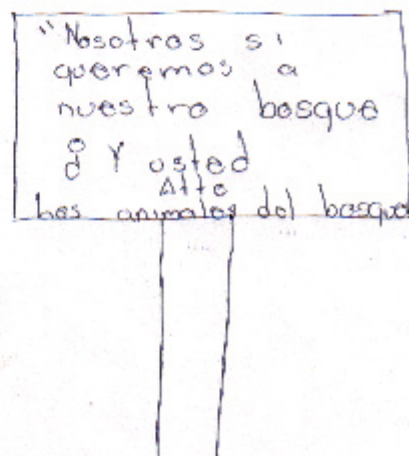 "Nosotros si
queremos a
nuestro bosque
¿ Y usted
Atte
Los animales del bosque